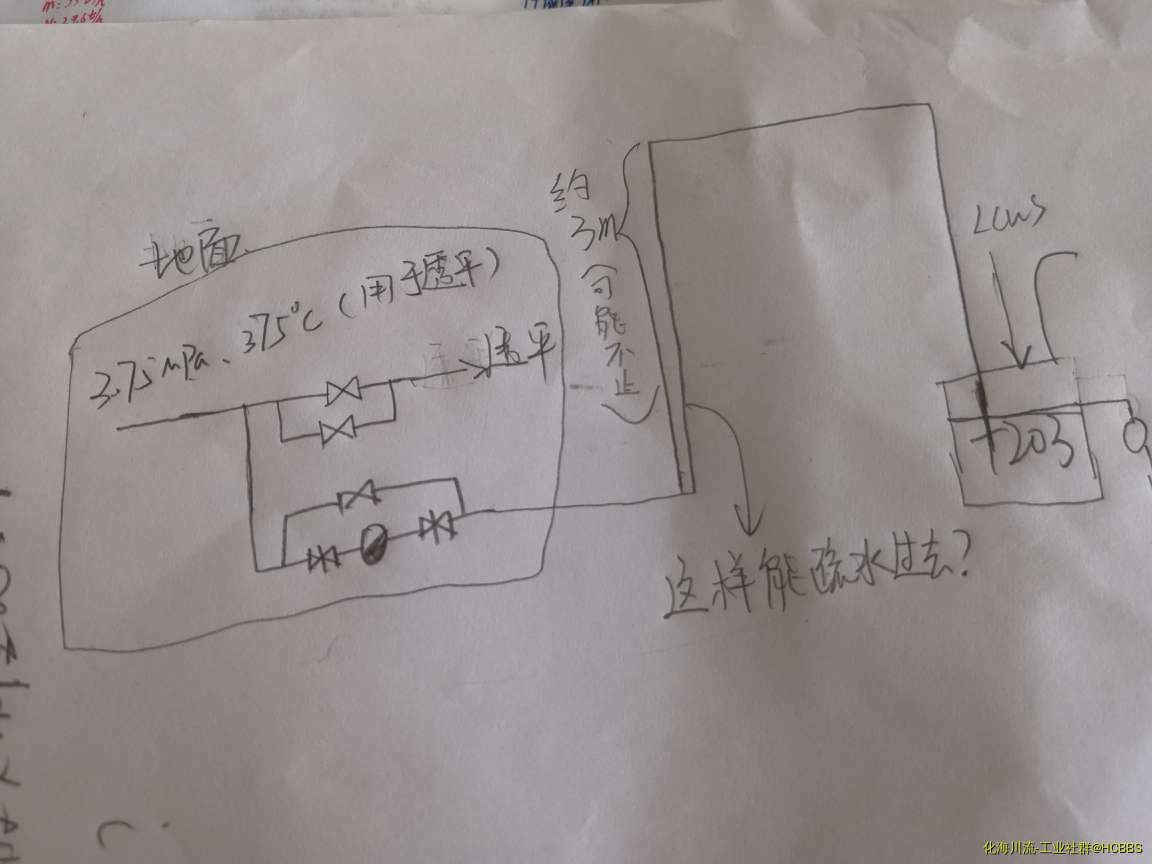 地面
3.75mPa、375℃(用于透平)
透平
约
3m
(可能不止)
LCWS
T203
这样能疏水过去?
化海川流-工业社群@HCBBS